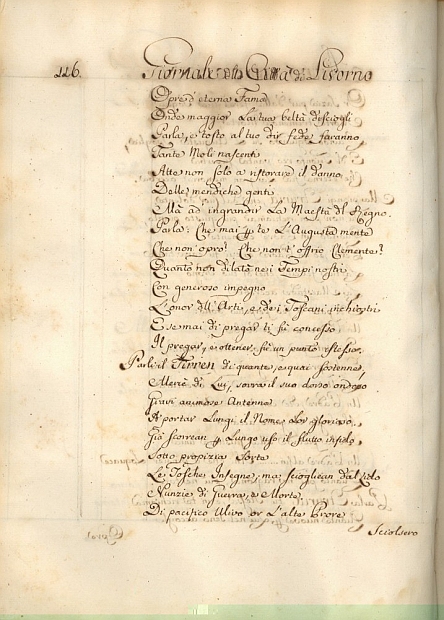 116. Giornale della Città di Livorno
Opre d'eterna Fama
Onde maggior La tua beltà disciogli
Parla, e tosto al tuo dir fede faranno
Tante Moli nascenti
Atte non solo a ristorare il danno
Delle mendiche genti
Mà ad ingrandir La Maestà del Regno.
Parla: Che mai p te L'Augusta mente
Che non oprò! Che non t'offrio Clemente?
Quanto non dilatò nei Tempi nostri
Con generoso impegno
L'onor dell'Arti, e dei Toscani inchiostri
E se mai di pregar ti fù concesso
Il pregar, e ottener fù un punto istesso.
Parli il Tirren di quante, e quai sostenne,
Mercè di Lui, sovra il suo dorso ondoso
Gravi animose Antenne
A portar Lungi il Nome Lor glorioso,
Già scorrean p Lungo uso il flutto infido
Sotto propizia Sorte
Le Tosche Insegne, ma scioglean dal Lido
Nunzie di Guerra, e Morte,
Di pacifico Ulivo or L'alte Prore
Sciolsero